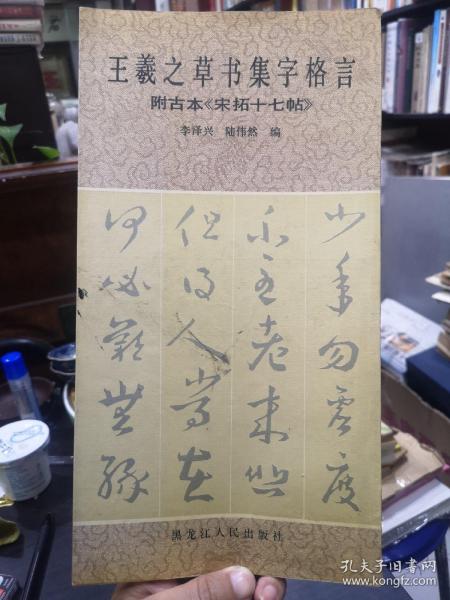 王羲之草书集字格言
附古本《宋拓十七帖》
李泽兴 陆伟然 编
少年勿虚度
老来
但得人常在
何必無缘
黑龙江人民出版社
孔夫子旧书网